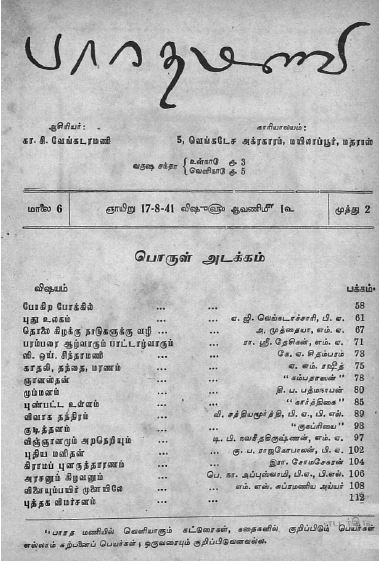 பாரதமணி
ஆசிரியர்:
கா. சி. வேங்கடரமணி
காரியாலயம்:
5, வெங்கடேச அக்ரகாரம், மயிலாப்பூர், மதராஸ்
வருஷ சந்தா { உள்நாடு ரூ. 3
வெளிநாடு ரூ. 5
மாலை 6 ஞாயிறு 17-8-41 விஷு௵ ஆவணி௴ 1௳ முத்து 2
பொருள் அடக்கம்
விஷயம் பக்கம்.
போகிற போக்கில் ... ... 58
புது உலகம் ... ஏ. ஜி. வெங்கடாச்சாரி, பி. ஏ. 61
தொலை கிழக்கு நாடுகளுக்கு வழி ... அ. முத்தையா, எம். ஏ. 67
பரம்பரை ஆழ்வாரும் பாட்டாழ்வாரும் ... ரா. ஸ்ரீ. தேசிகன், எம். ஏ. 71
ஸி. ஒய். சிந்தாமணி ... கே. ஏ. சிதம்பரம் 73
காதலி, தந்தை, மரணம் ... எம். ரஷீத் 75
ஞானஸ்தன் ... "கம்பதாஸன்" 78
மும்மனம் ... தி. ப. பத்மநாபன் 80
புண்பட்ட உள்ளம் ... "கார்த்திகை" 85
விவாக தந்திரம் ... வி. சத்தியமூர்த்தி, பி. ஏ., பி. எல். 89
குடித்தனம் ... "குகப்ரியை" 93
விஞ்ஞானமும் அறநெறியும் ... டி. பி. நவநீதகிருஷ்ணன், எம். ஏ. 97
புதிய மனிதன் ... கு. ப. ராஜகோபாலன், பி. ஏ. 102
கிராமப் புனருத்தாரணம் ... இரா. சோமசேகரன் 104
அரசனும் கிழவனும் ... பெ. நா. அப்புஸ்வாமி, பி.ஏ., பி.எல். 106
விளையும்பயிர் முளையிலே ... எம். எஸ். சுப்ரமணிய அய்யர் 108
புத்தக விமர்சனம் ... ... 112
"பாரத மணியில் வெளியாகும் கட்டுரைகள், கதைகளில் குறிப்பிடும் பெயர்கள்
எல்லாம் கற்பனைப் பெயர்கள்; ஒருவரையும் குறிப்பிடுவனவல்ல.